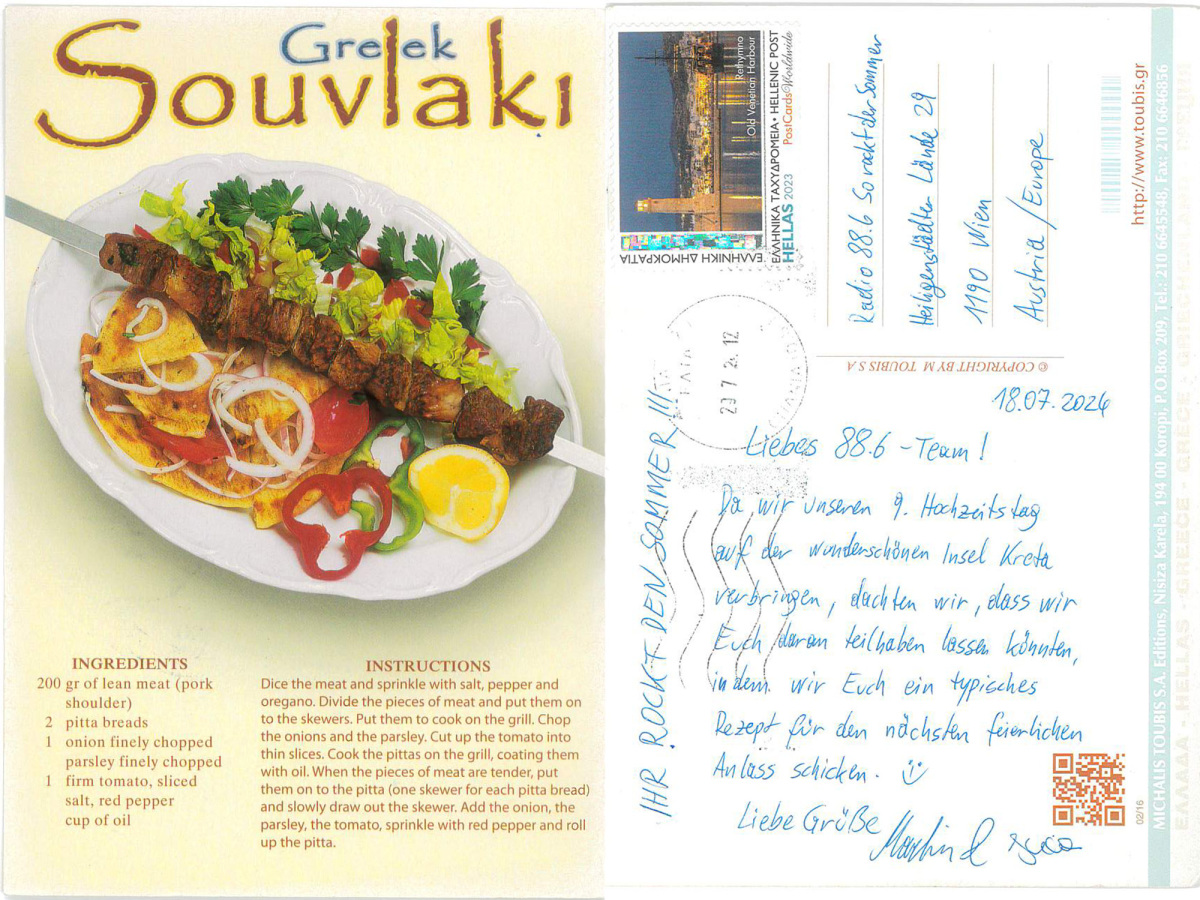 Greek
Souvlaki
INGREDIENTS
200 gr of lean meat (pork
shoulder)
2 pitta breads
1 onion finely chopped
parsley finely chopped
1 firm tomato, sliced
salt, red pepper
cup of oil
INSTRUCTIONS
Dice the meat and sprinkle with salt, pepper and
oregano. Divide the pieces of meat and put them on
to the skewers. Put them to cook on the grill. Chop
the onions and the parsley. Cut up the tomato into
thin slices. Cook the pittas on the grill, coating them
with oil. When the pieces of meat are tender, put
them on to the pitta (one skewer for each pitta bread)
and slowly draw out the skewer. Add the onion, the
parsley, the tomato, sprinkle with red pepper and roll
up the pitta.
Rethymno
Old Venetian Harbour
PostCards@Worldwide
ΕΛΛΗΝΙΚΑ ΤΑΧΥΔΡΟΜΕΙΑ • HELLENIC POST
HELLAS 2023
ΕΛΛΗΝΙΚΗ ΔΗΜΟΚΡΑΤΙΑ
29 7 24 12
Radio 88.6 So rockt der Sommer
Heiligenstädter Lände 29
1190 Wien
Austria / Europe
© COPYRIGHT BY M TOUBIS S A
http://www.toubis.gr
18.07.2024
Liebes 88.6 - Team!
Da wir unseren 9. Hochzeitstag
auf der wunderschönen Insel Kreta
verbringen, dachten wir, dass wir
Euch daran teilhaben lassen könnten,
indem wir Euch ein typisches
Rezept für den nächsten feierlichen
Anlass schicken.
Liebe Grüße
Martin &
IHR ROCKT DEN SOMMER !!!
02/16
MICHALIS TOUBIS S.A. Editions, Nisiza Karela, 194 00 Koropi, P.O.Box 209, Tel.: 210 6645548, Fax: 210 6646856
ΕΛΛΑΔΑ - HELLAS - GREECE - GRECE - GRIECH